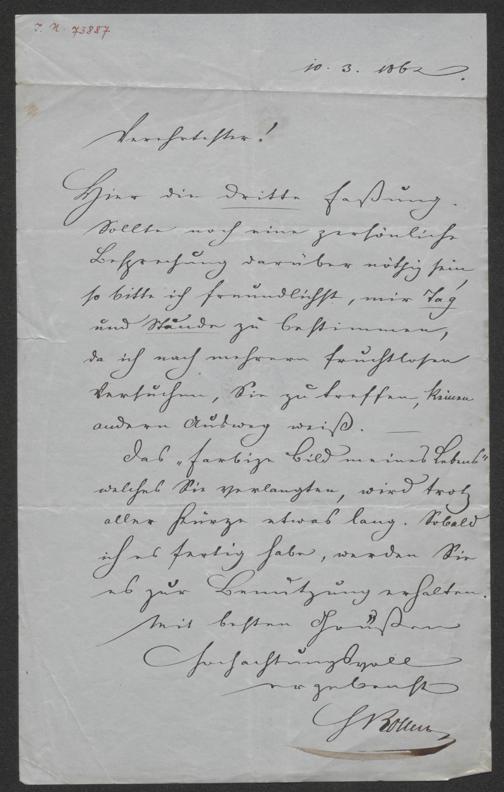 I. N. 73887
10. 3. 1862.
Verehrtester!
Hier die dritte Faßung.
Sollte noch eine persönliche
Besprechung darüber nöthig sein,
so bitte ich freundlichst, mir Tag
und Stunde zu bestimmen,
da ich nach mehrern fruchtlosen
Versuchen, Sie zu treffen, keinen
andern Ausweg weiß. —
Das „farbige Bild meines Lebens"
welches Sie verlangten, wird trotz
aller Kürze etwas lang. Sobald
ich es fertig habe, werden Sie
es zur Benützung erhalten.
Mit besten Grüßen
Hochachtungsvoll
ergebenst